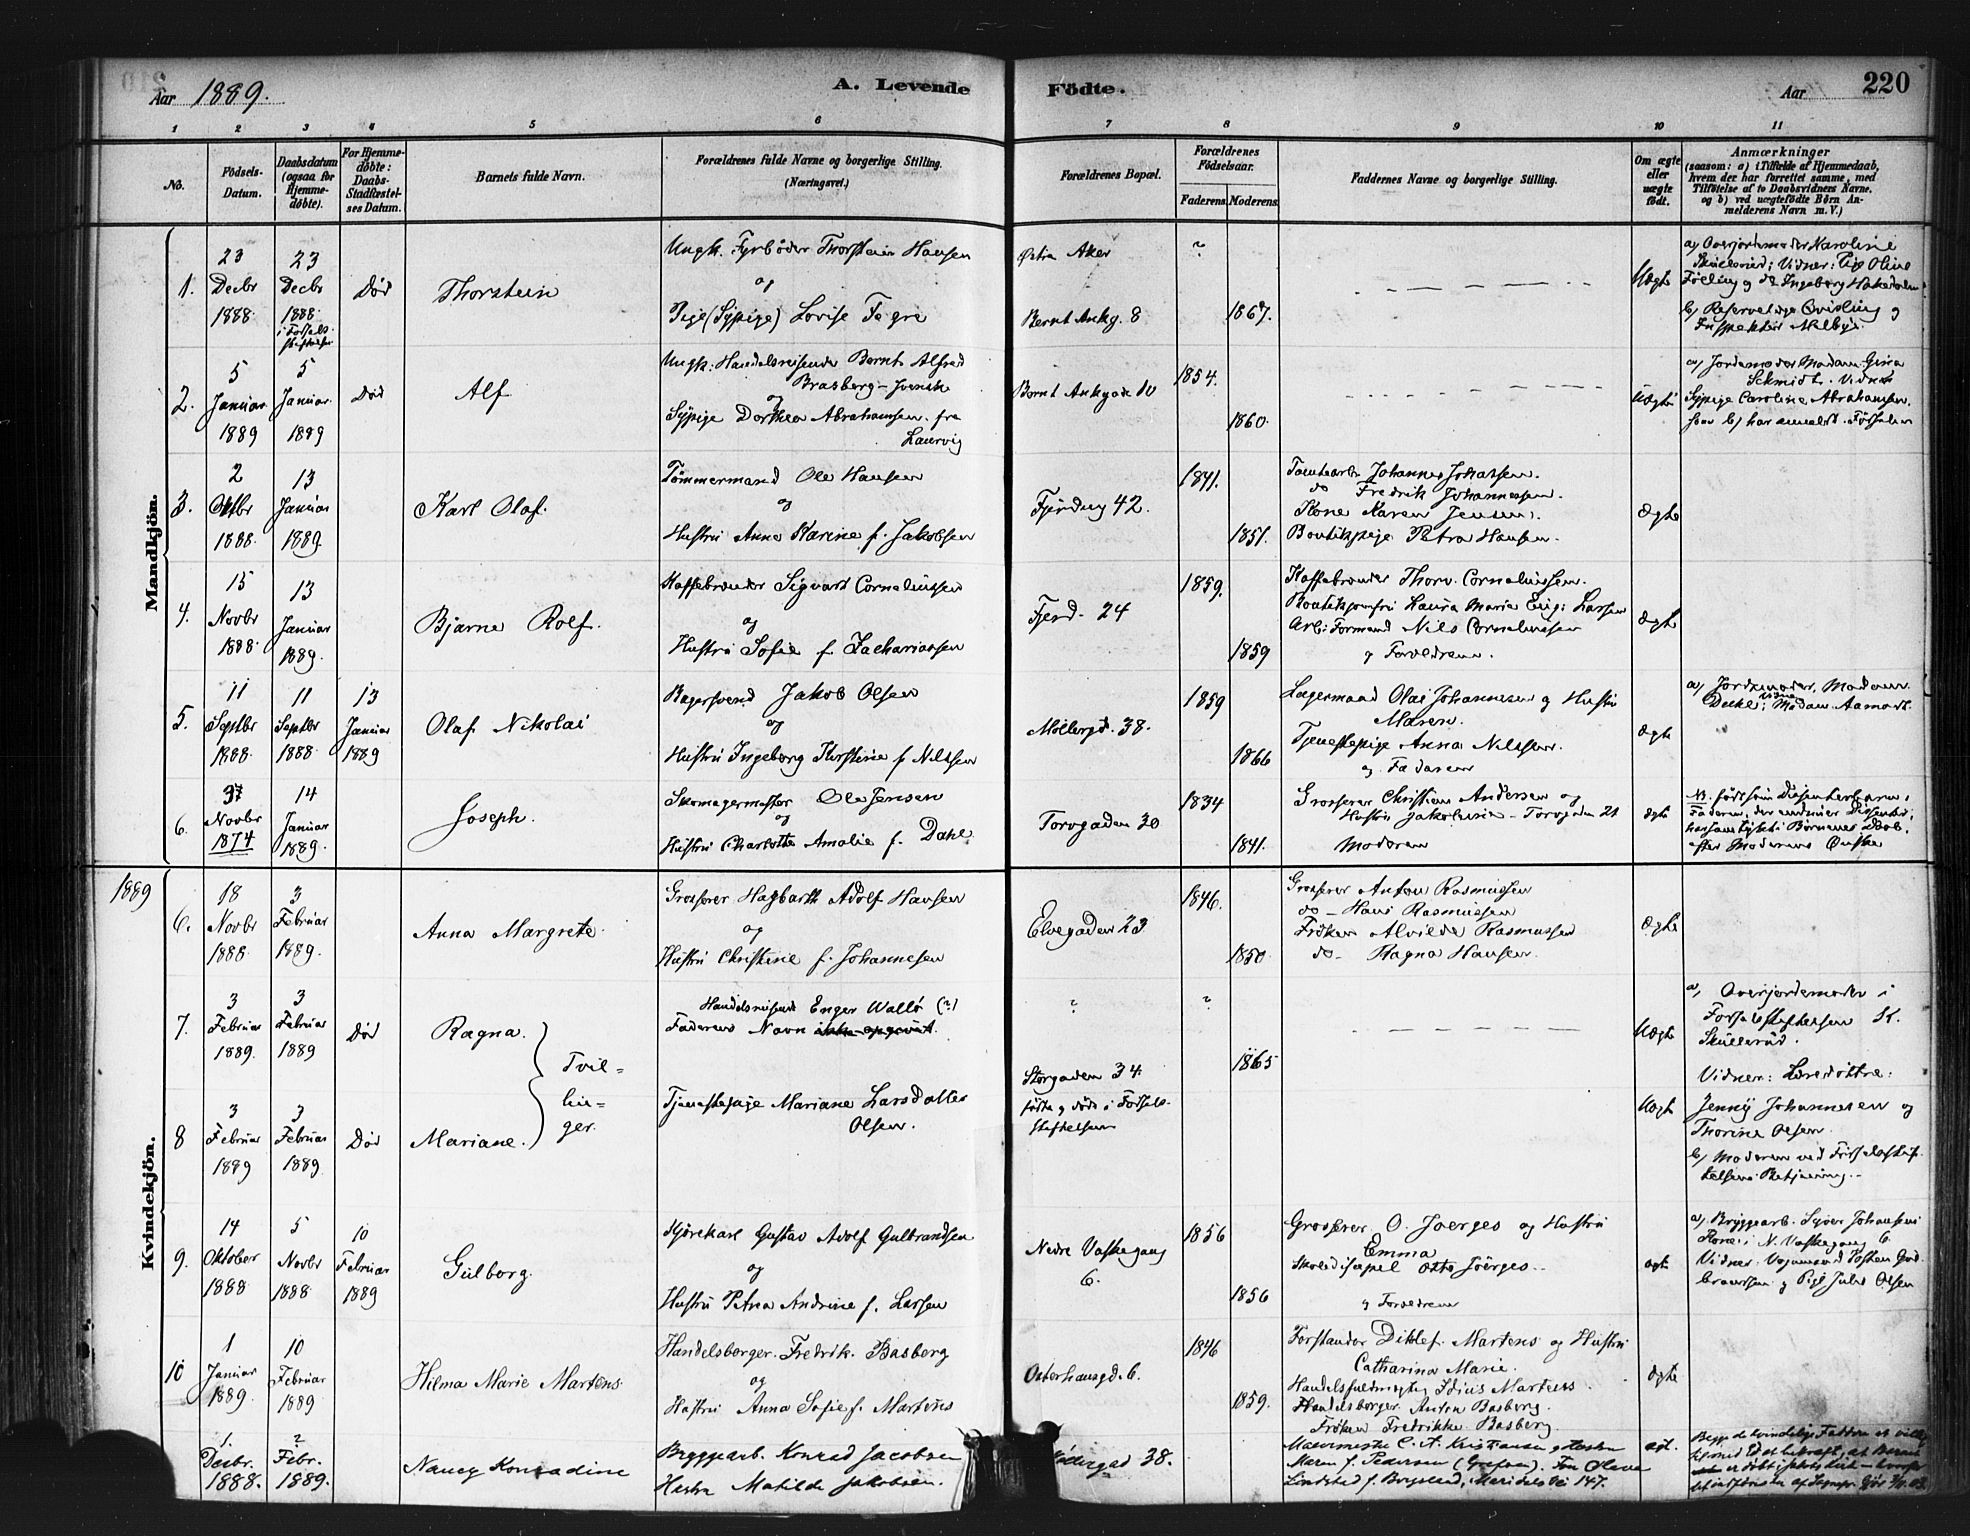 Aar 1889.
A. Levende
Födte.
Aar
220
1 2 3 4 5 6 7 8 9 10 11
No.
Födsels-Datum.
Daabsdatum (ogsaa for Hjemme-döbte).
For Hjemme-döbte: Daabs-Stadfæstel-ses Datum.
Barnets fulde Navn.
Forældrenes fulde Navne og borgerlige Stilling. (Næringsvei.)
Forældrenes Bopæl.
Forældrenes Födselsaar.
Faderens. Moderens.
Faddernes Navne og borgerlige Stilling.
Om ægte eller uægte födt.
Anmærkninger
(saasom: a) i Tilfælde af Hjemmedaab, hvem der har forrettet samme, med Tilföielse af to Daabsvidners Navne, og b) ved uægtefödte Börn An-melderens Navn m. V.)
Mandkjön.
1.
23 Decbr 1888
23 Decbr 1888 i Fødsels-stiftelsen
Død
Thorstein
Ungk. Fyrbøder Thorstein Hansen
og
Pige (Sypige) Lovise Fagre
Østre Aker
Bernt Ankg. 8
?
1867.
Uægte
a) Overjordemoder Karoline
Skullerud; Vidner: Pige Oline
b) Reservelæge Qvisling og
2.
5 Januar 1889
5 Januar 1889
Død
Alf
Ungk: Handelsreisende Bernt Alfred
Brasberg - svensk
og
Sypige Dorthea Abrahamsen fra
Laurvig
Bernt Ankgade 10
1854.
1860.
Uægte
a) Jordemoder Madam Gina
Schmidt. Vidner
Sypige Caroline Abrahamsen
som b) har anmeldt Fødselen
3.
2 Oktbr 1888
13 Januar 1889
Karl Olaf.
Tømmermand Ole Hansen
og
Hustru Anna Karine f. Jakobsen
Fjerding 42.
1841.
1851.
Johannes Johansen.
do Fredrik Johannessen.
Kone Karen Jensen.
Boutikspige Petra Hansen.
Ægte
4.
15 Novbr 1888
13 Januar 1889.
Bjarne Rolf.
Kaffebrænder Sigvart Corneliussen
og
Hustru Sofie f. Zachariassen
Fjerd. 24
1859.
1859
Kaffebrænder Thorv. Corneliussen.
Boutiksjomfru Laura Marie Eug: Larsen
Arb: Formand Nils Corneliussen
og Forældrene.
Ægte
5.
11 Septbr 1888
11 Septbr 1888
13 Januar 1889
Olaf Nikolai
Bagersvend Jakob Olsen
og
Hustru Ingeborg Kirstine f. Nilsen
Møllergd. 38.
1859
1866
Lagermand Olai Johannesen og Hustru
Maren.
Tjenestepige Anna Nilsen.
og Faderen
Ægte
a) Jordemoder, Madam
Madam Aamodt.
6.
Novbr 1874
14 Januar 1889.
Joseph.
Skomagermester Ole Jensen
og
Hustru Charlotte Amalie f. Dahl
Torvgaden 30
1834
1841.
Grosserer Christian Andersen og
Hustru Jakobine - Torvgaden 21
Moderen
Ægte
NB. født som Dissenterbarn,
Faderen, der endnu er Dissenter,
har samtykket i Barnets Daab
efter Moderens Ønske
Kvindekjön.
1889
6.
18 Novbr 1888.
3 Februar 1889.
Anna Margrete.
Grosserer Hagbarth Adolf Hansen
og
Hustru Christine f. Johannesen
Elvegaden 23
1846.
1850
Grosserer Anton Rasmussen
do - Hans Rasmussen
Frøken Alvilde Rasmussen
do - Ragna Hansen.
Ægte
7.
3 Februar 1889.
3 Februar 1889
Død
Ragna.
Tvil-lin-ger.
Handelsreisende Enger Wallø (?)
Faderens Navn ikke opgivet.
?
?
1865
Uægte
a) Overjordemoder i
Fødselsstiftelsen K.
Skullerud.
Vidner: Læredøttre:
8
3 Februar 1889
3 Februar 1889.
Død
Mariane.
Tjenestepige Mariane Larsdatter
Olsen.
Storgaden 34.
fødte og døde i Fødsels-
stiftelsen
Uægte
Jenny Johannesen og
Thorine Olsen.
b) Moderen ved Fødselsstif-
telsens Betjening.-
9.
14 Oktober 1888
5 Novbr 1888
10 Februar 1889
Gulborg.
Kjørekarl Gustav Adolf Gulbrandsen
og
Hustru Petra Andrine f. Larsen
Nedre Vaskegang
6.
1856
1856
Grosserer O. Joerges og Hustru
Emma
Skoledisipel Otto Joerges.
og Forældrene
ægte
a) Bryggearb. Syver Johansens
Kone i N. Vaskegang 6.
10
1 Januar 1889.
10 Februar 1889
Hilma Marie Martens
Handelsborger. Fredrik Basberg
og
Hustru Anna Sofie f. Martens
Osterhausgd. 6.
1846
1859.
Forstander Ditlef Martens og Hustru
Catharina Marie.
Handelsfuldmægtig Idius Martens.
Handelsborger Anton Basberg.
Frøken Fredrikke Basberg
Ægte
1. Decbr. 1888.
2 Febr. 1889.
Nancy Konradine
Bryggearb. Konrad Jacobsen
Hustru Matilde Jakobsen.
Møllergad 38.
Murmester C. A. Kristiansen og Hustru
Maren f. Pedersen (Grefsen). Fru Oleva
Lindstad f. Bryneld, Maridalsvei 147.
ægt.